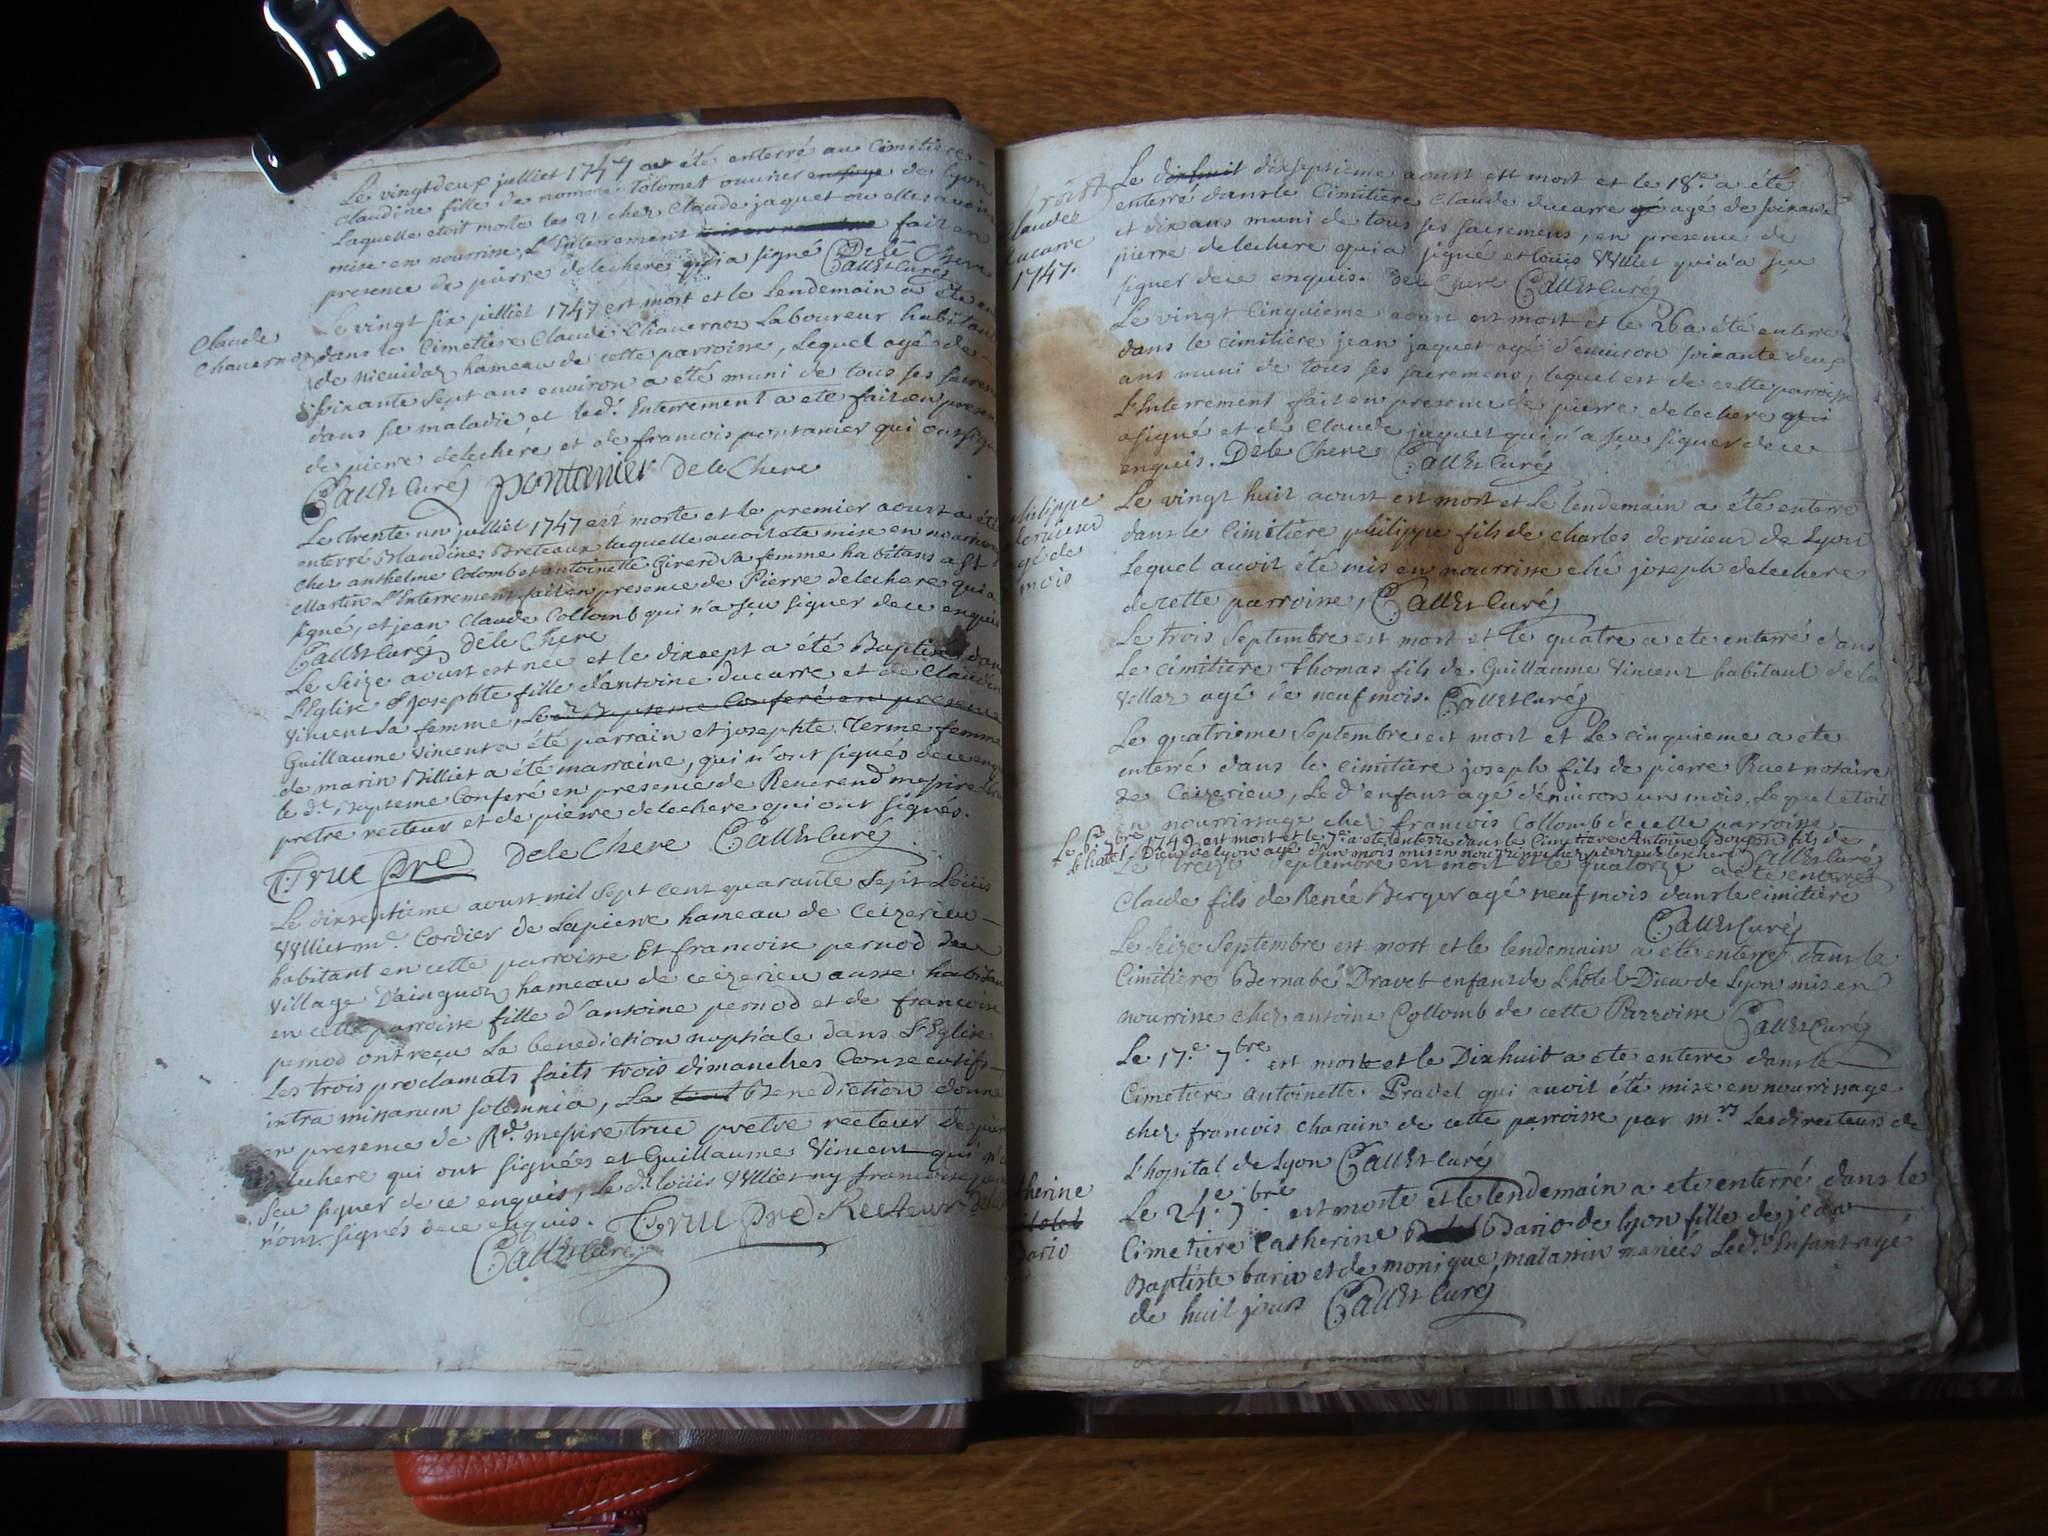 Le vingtdeux julliet 1747 a été enterré au Cimitiere
Claudine fille de nommé Tolomet ouvrier de Lyon
Laquelle etoit morte le 21 chez Claude jaquet ou elle avoit
mise en nourrisse, L'Enterrement fait en
presence de pierre delechere qui a signé DeleChere
CalletCuré
Le vingt six julliet 1747 est mort et le Lendemain a été en
Claude
Chavernoz
dans le Cimetiere Claude Chavernoz Laboureur habitant
de hameau de cette parroisse, Lequel agé de
soixante sept ans environ a été muni de tous ses sacrem
dans sa maladie, et led. Enterrement a eté fait en presen
de pierre delechere et de francois pontanier qui ont signé
CalletCuré pontanier DeleChere
Le trente un julliet 1747 est morte et le premier aoust a été
enterré Blandine Breteaux laquelle avoit été mise en nourrisse
chez anthelme Colombet antoinette Girerd sa femme habitans a St
Martin L'Enterrement fait en presence de Pierre delechere qui a
signé, et jean Claude Collomb qui n'a sçu signer de ce enquis
CalletCuré deleChere
Le seize aoust est née et le dixsept a été Baptisée dan
L'Eglise josephte fille d'antoine ducarre et de Claudin
Vincent sa femme, Le Bapteme Conferé en presence
Guillaume Vincent a été parrain et josephte Terme femme
de marin Billiet a été marraine, qui n'ont signés de ce enq
le d. Bapteme Conferé en presence de Reverend messire
pretre recteur et de pierre delechere qui ont signés.
True pre DeleChere CalletCuré
Le dixseptieme aoust mil sept cent quarante sept Loüis
VUlliet me. Cordier de Lapierre hameau de Ceizerieu
habitant en cette parroisse Et francoise pernod du
village D'ainguoz hameau de ceizerieu ausse habitan
en cette parroisse fille d'antoine pernod et de francoise
pernod ont reçu La benediction nuptiale dans L'Eglise
Les trois proclamats faits trois dimanches Consecutifs
intra missarum solemnia, La Benediction donné
en presence de Rd. messire true pretre recteur de pier
delechere qui ont signées et Guillaume Vincent qui n'a
sçu signer de ce enquis, le d. loüis VUlliet ny francoise
n'ont signés de ce enquis. True pre Recteur
CalletCuré
Claude
ducarre
1747.
Le dixhuit dixseptieme aoust est mort et le 18e. a été
enterré dans le Cimitiere Claude ducarre agé de soixante
et dix ans muni de tous ses sacremens, en presence de
pierre delechere qui a signé et louis VUlliet qui n'a sçu
signer de ce enquis. DeleChere CalletCuré
Le vingt Cinquieme aoust est mort et le 26 a été enterré
dans le cimitiere jean jaquet agé d'environ soixante deux
ans muni de tous ses sacremens, lequel est de cette parroisse
L'Enterrement fait en presence de pierre delechere qui
a signé et de Claude jaquet qui n'a sçu signer de ce
enquis. DeleChere CalletCuré
philippe
dervieux
agé de
mois
Le vingt huit aoust est mort et Le lendemain a été enterré
dans le Cimitiere philippe fils de charles dervieux de Lyon
Lequel avoit été mis en nourrisse ché joseph delechere
de cette parroisse, CalletCuré
Le trois Septembre est mort et le quatre a eté enterré dans
Le cimitiere Thomas fils de Guillaume Vincent habitant de la
Villaz agé de neuf mois. CalletCuré
Le quatrieme Septembre est mort et Le cinquieme a eté
enterré dans le cimitiere joseph fils de pierre Ruet notaire
de Ceizerieu, Le d'enfant agé d'environ un mois, Lequel etoit
en nourrissage chez francois Collomb de cette parroisse
Le 6e 7bre 1749 est mort et le 7e a eté enterré dans le Cimetiere Antoine fils de
L'hotel Dieu de Lyon agé d'un mois mis en nourrisse chez pierre delechere CalletCuré
Le treize Septembre est mort et le quatorze a eté enterré
Claude fils de Renée Berger agé neuf mois dans le cimitiere
CalletCuré
Le Seize Septembre est mort et le lendemain a eté enterré dans le
Cimitiere Bernabé Dravet enfant de L'hotel-Dieu de Lyon mis en
nourrisse chez antoine Collomb de cette Parroisse CalletCuré
Le 17.e 7bre est morte et le Dixhuit a eté enterré dans le
Cimetiere antoinette Pravel qui avoit été mise en nourrissage
chez francois charvin de cette parroisse par mrs Les directeurs de
L'hospital de Lyon CalletCuré
Catherine
Bario
Le 24.e 7bre est morte et le lendemain a eté enterré dans le
Cimetiere Catherine Bario de Lyon fille de jean
Baptiste bario et de monique matassin mariés Led. Enfant agé
de huit jours CalletCuré